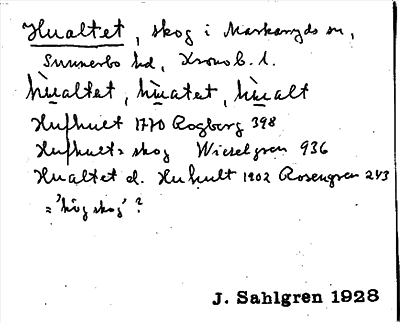 Hualtet, skog i Markaryds sn,
Sunnerbo hd, Kronob. l.
hùaltet, hùatet, hùalt
Hufhult 1770 Rogberg 398
Hufhults skog Wieselgren 936
Hualtet d. Huhult 1902 Rosengren 243
= 'hög skog' ?
J. Sahlgren 1928